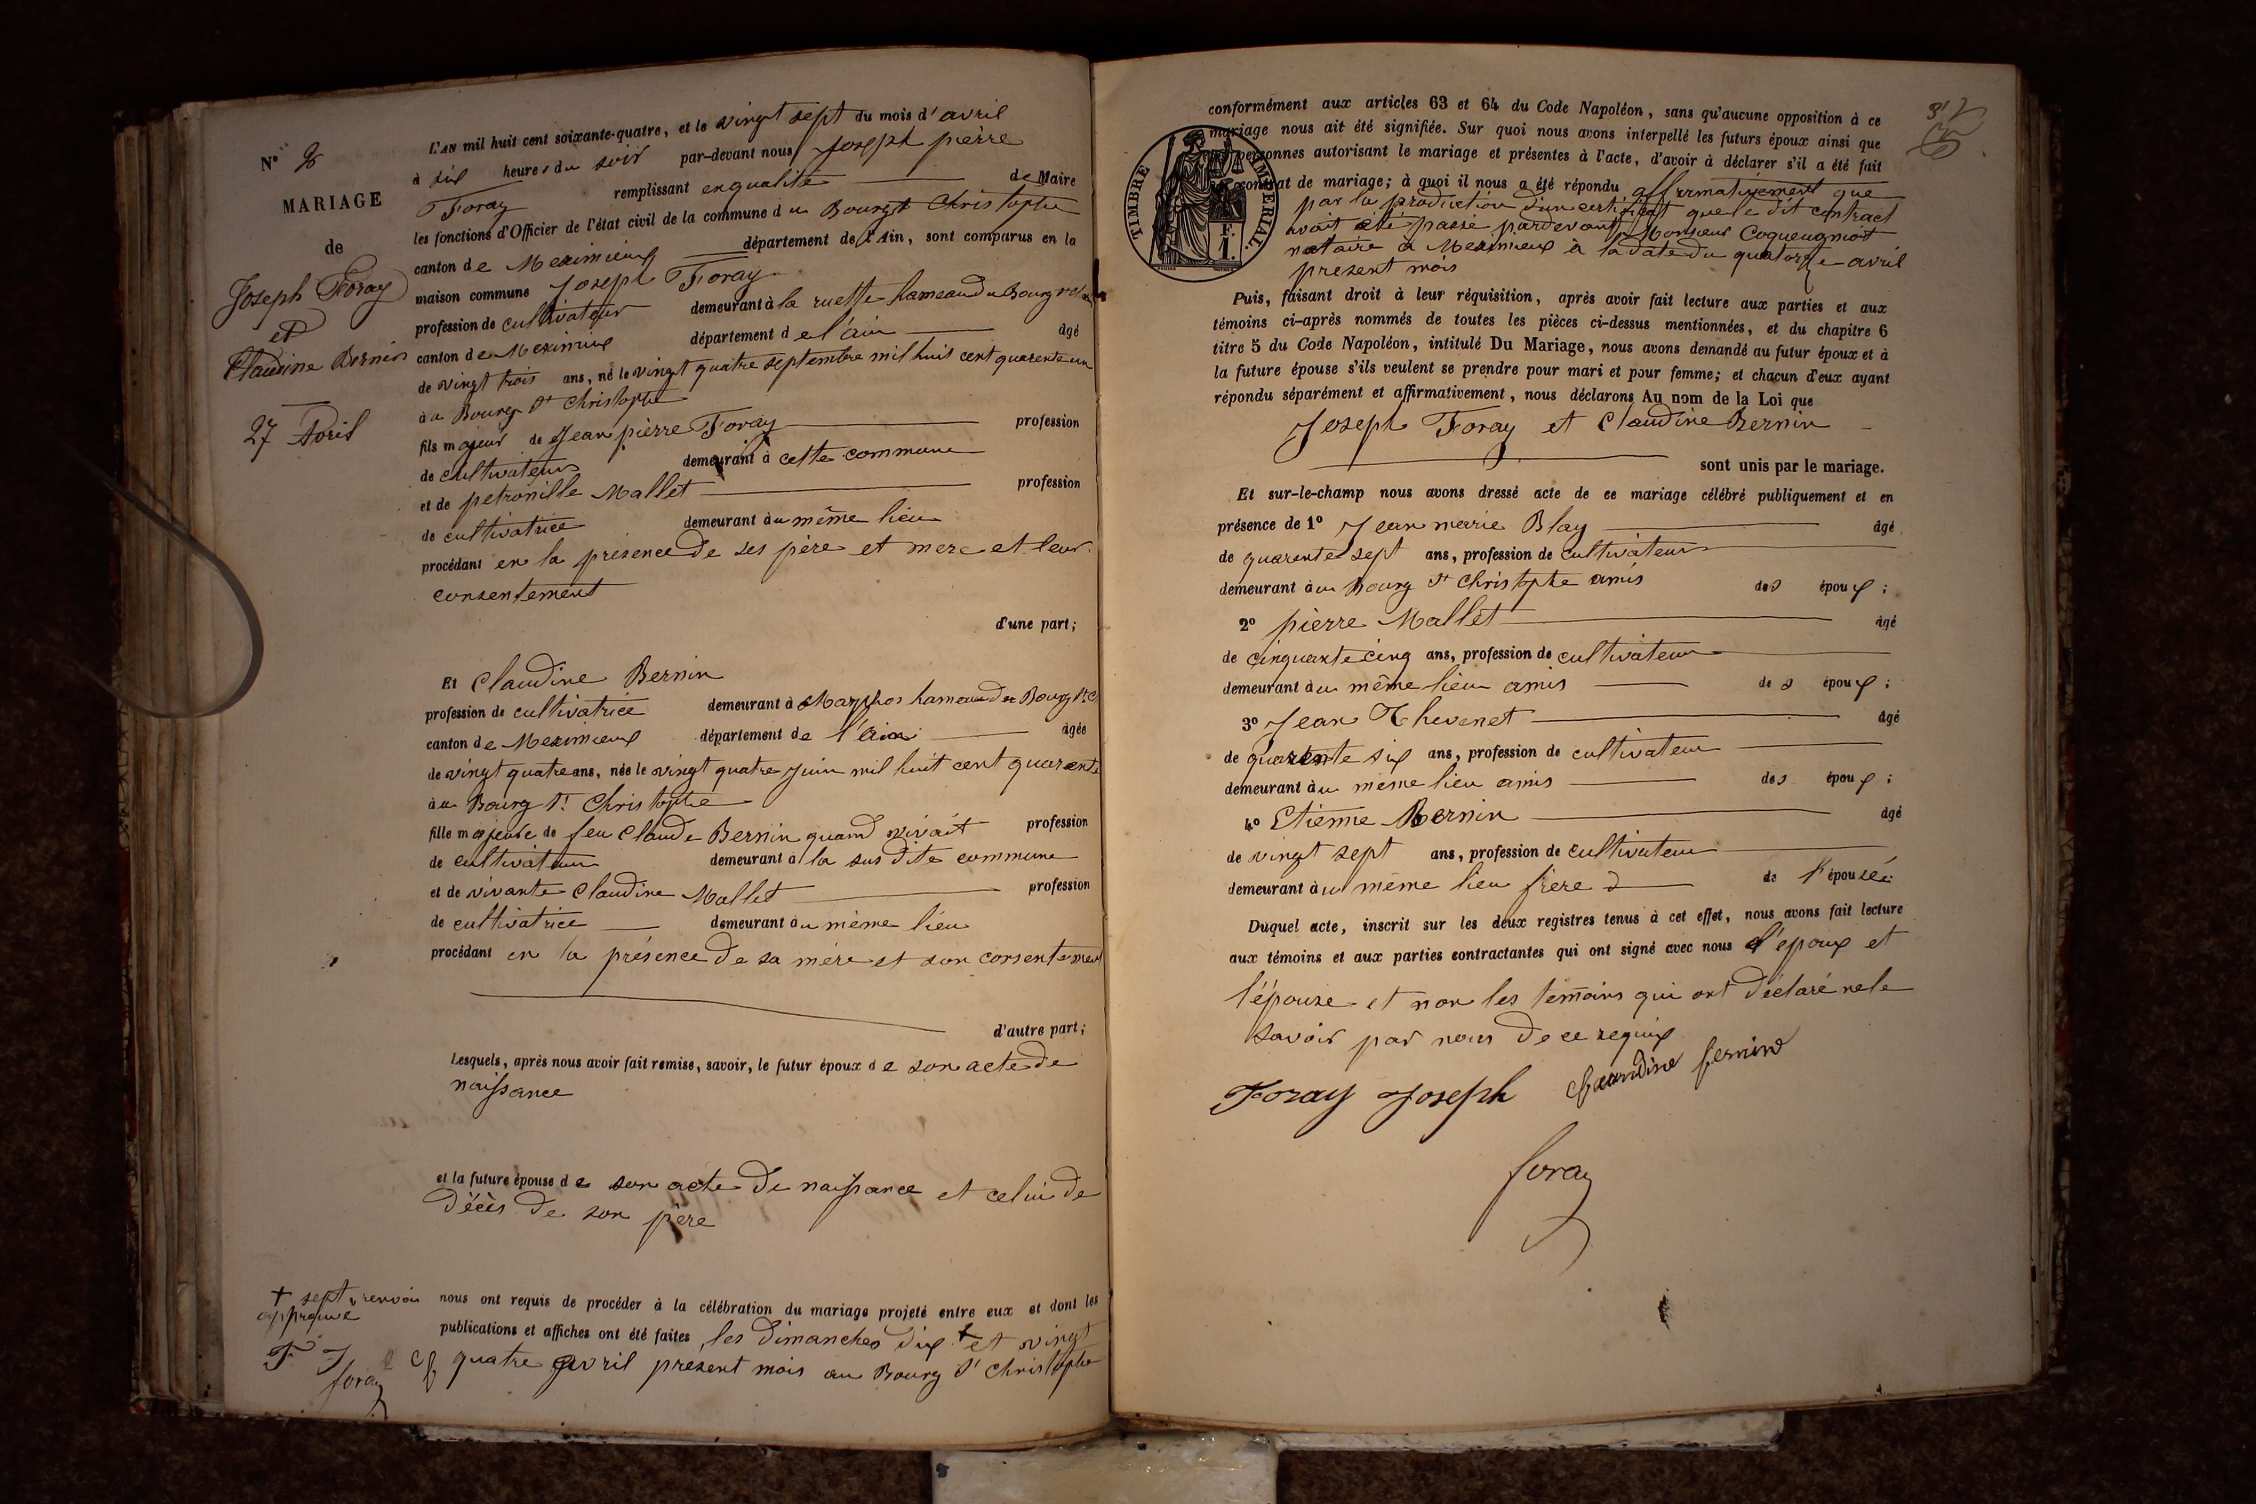 N° 8
MARIAGE
de
Joseph Foray
et
Claudine Bernin
27 Avril
L'AN mil huit cent soixante-quatre, et le vingt sept du mois d'avril
à six heures du soir par-devant nous Joseph pièrre
Foray remplissant en qualité de Maire
les fonctions d'Officier de l'état civil de la commune du Bourg St Christophe
canton de Meximieux département de l'Ain, sont comparus en la
maison commune Joseph Foray
profession de cultivateur demeurant à la ruette hameau du Bourg
canton de Meximieux département de l'ain âgé
de vingt trois ans, né le vingt quatre septembre mil huit cent quarente un
à au Bourg St Christophe
fils majeur de Jean pièrre Foray profession
de cultivateur demeurant à cette commune
et de petronille Mallet profession
de cultivatrice demeurant au même lieu
procédant en la présence de ses père et mere et leur
consentement
d'une part;
Et Claudine Bernin
profession de cultivatrice demeurant à Marphos hameau du Bourg St C
canton de Meximieux département de l'Ain âgée
de vingt quatre ans, née le vingt quatre Juin mil huit cent quarente
à au Bourg St Christophe
fille majeure de feu Claude Bernin quand vivait profession
de cultivateur demeurant à la sus dite commune
et de vivante Claudine Mallet profession
de cultivatrice demeurant au même lieu
procédant en la présence de sa mère et son consentement
d'autre part;
Lesquels, après nous avoir fait remise, savoir, le futur époux de son acte de
naissance
et la future épouse de son acte de naissance et celui de
décès de son père
nous ont requis de procéder à la célébration du mariage projeté entre eux et dont les
publications et affiches ont été faites les dimanches dix + et vingt
quatre avril present mois au Bourg St Christophe
+ sept renvoi
approuvé
F J C f
foray
conformément aux articles 63 et 64 du Code Napoléon, sans qu'aucune opposition à ce
mariage nous ait été signifiée. Sur quoi nous avons interpellé les futurs époux ainsi que
personnes autorisant le mariage et présentes à l'acte, d'avoir à déclarer s'il a été fait
contrat de mariage; à quoi il nous a été répondu affirmativement que
par la production d'un certificat que le dit contract
avoit été passé pardevant Monsieur Coqueugniot
notaire à Meximieux à la date du quatorze avril
present mois
TIMBRE IMPÉRIAL.
F.
1.
Puis, faisant droit à leur réquisition, après avoir fait lecture aux parties et aux
témoins ci-après nommés de toutes les pièces ci-dessus mentionnées, et du chapitre 6
titre 5 du Code Napoléon, intitulé Du Mariage, nous avons demandé au futur époux et à
la future épouse s'ils veulent se prendre pour mari et pour femme; et chacun d'eux ayant
répondu séparément et affirmativement, nous déclarons Au nom de la Loi que
Joseph Foray et Claudine Bernin
sont unis par le mariage.
Et sur-le-champ nous avons dressé acte de ce mariage célébré publiquement et en
présence de 1° Jean marie Blay âgé
de quarente sept ans, profession de cultivateur
demeurant à au Bourg St Christophe amis des époux;
2° pièrre Mallet âgé
de cinquante cinq ans, profession de cultivateur
demeurant à au même lieu amis des époux;
3° Jean Thevenet âgé
de quarente six ans, profession de cultivateur
demeurant à au même lieu amis des époux;
4° Etienne Bernin âgé
de vingt sept ans, profession de cultivateur
demeurant à au même lieu frère d de l'épousée;
Duquel acte, inscrit sur les deux registres tenus à cet effet, nous avons fait lecture
aux témoins et aux parties contractantes qui ont signé avec nous l'époux et
l'épouse et non les témoins qui ont déclaré ne le
savoir par nous de ce requis
Foray Joseph Claudine bernin
foray